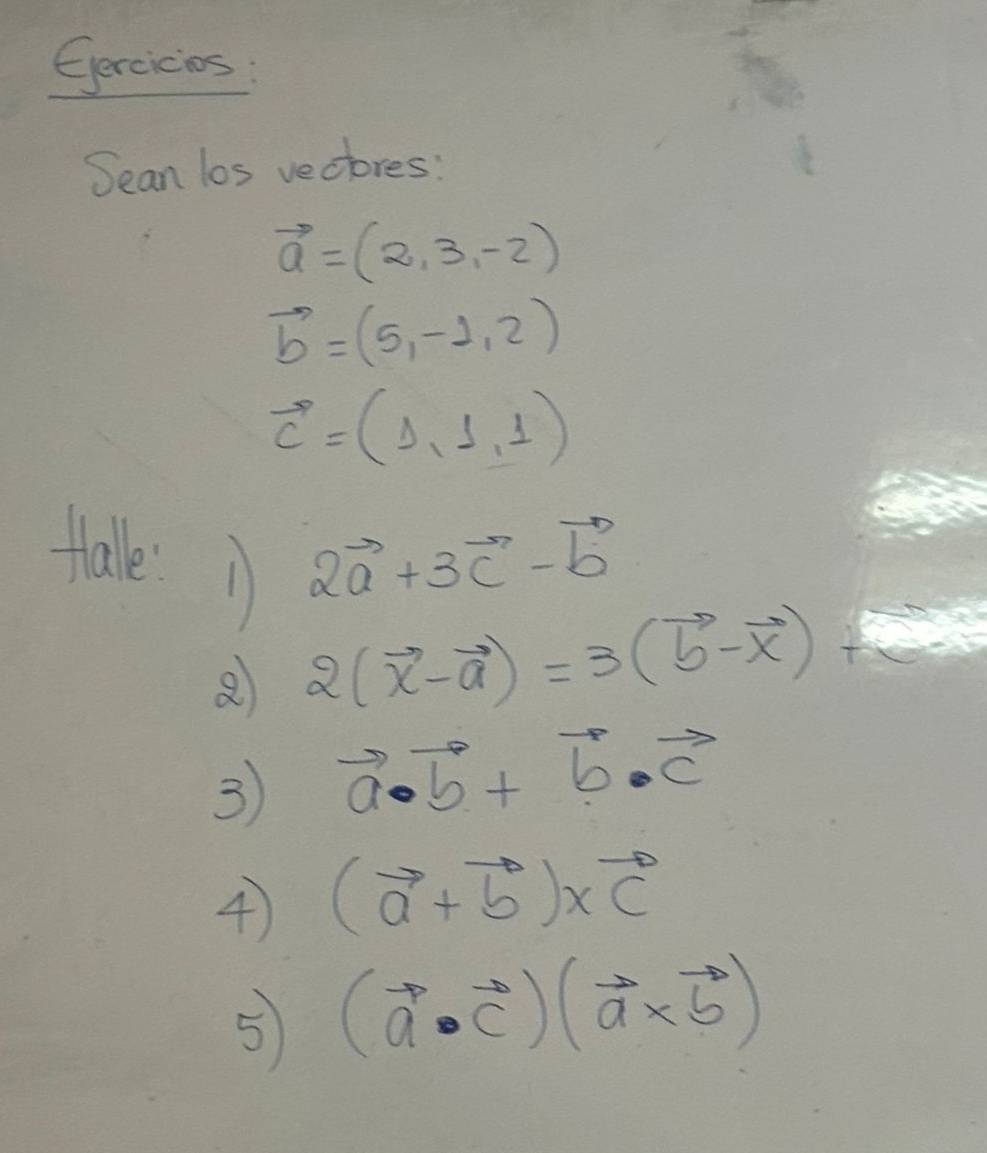 Ejercicios:
Sean los vectores:
a⃗ = (2, 3, -2)
b⃗ = (5, -1, 2)
c⃗ = (1, 1, 1)
Halle: 1) 2a⃗ + 3c⃗ - b⃗
2) 2(x⃗ - a⃗) = 3(b⃗ - x⃗) + c⃗
3) a⃗ • b⃗ + b⃗ • c⃗
4) (a⃗ + b⃗) x c⃗
5) (a⃗ • c⃗)(a⃗ x b⃗)